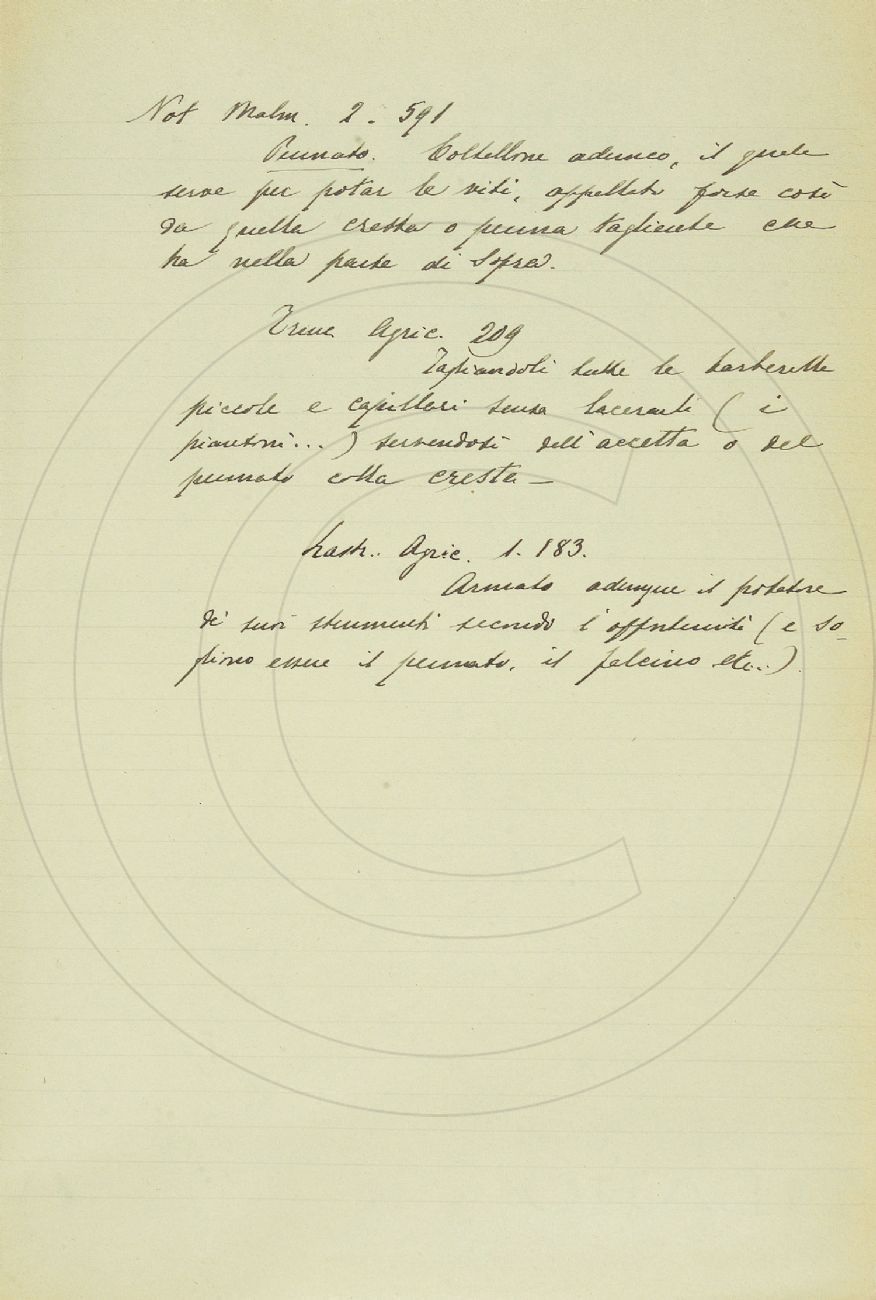 Not Malm. 2. 591
Pennato. Coltellone adunco, il quale
serve per potar le viti, appellato forse così
da quella cresta o penna tagliente che
ha nella parte di sopra.
Trinc. Agric. 209
Tagliandoli tutte le barberelle
piccole e capillari senza lacerarli ( i
piantoni... ) servendosi dell'accetta o del
pennato colla cresta —
Lastr. Agric. 1. 183.
Armato adunque il potatore
de' suoi strumenti secondo l'opportunità ( e so-
gliono essere il pennato, il falcino etc..)